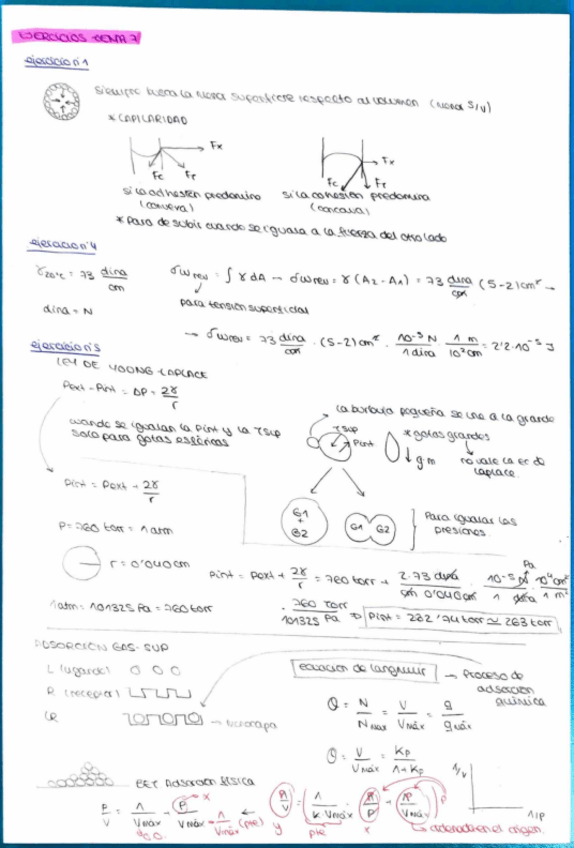 EJERCICIOS TEMA 7
ejercicio nº1
siempre hacia la menor superficie respecto al volumen (menor S/V)
* CAPILARIDAD
Fx
Fc Fr
si la adhesión predomina
(convexa)
Fx
Fc Fr
si la cohesión predomina
(concava)
* Para de subir cuando se iguala a la fuerza del otro lado
ejercicio nº4
γ20ºC = 73 dina/cm
δWrev = ∫ γ dA → δWrev = γ (A2 - A1) = 73 dina/cm (5-2) cm² →
para tensión superficial
dina = N
→ δWrev = 73 dina/cm · (5-2) cm² · 10⁻⁵ N/1 dina · 1 m/10² cm = 2'2·10⁻⁵ J
ejercicio nº5
LEY DE YOUNG-LAPLACE
Pext - Pint = ΔP = 2γ/r
cuando se igualan la Pint y la γsup
solo para gotas esféricas
la burbuja pequeña se une a la grande
γsup
Pint
* gotas grandes
↓ g m
no vale la ec de
Laplace
Pint = Pext + 2γ/r
G1 + G2
G1 G2
Para igualar las
presiones
P = 760 torr = 1 atm
r = 0'040 cm
Pint = Pext + 2γ/r = 760 torr + 2·73 dina/cm 0'040 cm · 10⁻⁵ N/1 dina · 10⁴ cm²/1 m²
Pa
1 atm = 101325 Pa = 760 torr
· 760 torr/101325 Pa ⇒ Pint = 262'74 torr ≃ 263 torr
ADSORCIÓN GAS-SUP
L (ligando)
R (receptor)
LR → Monocapa
ecuación de langmuir → Proceso de
adsorción
química
θ = N/Nmax = V/Vmáx = g/gmáx
θ = V/Vmáx = Kp/1+Kp
1/V
1/P
BET Adsorción física
P/V = 1/Vmáx + P/Vmáx → x
1/Vmáx (pte)
P/V = ( 1/K Vmáx · P/P + P/Vmáx ) P
y pte x
ordenada en el origen